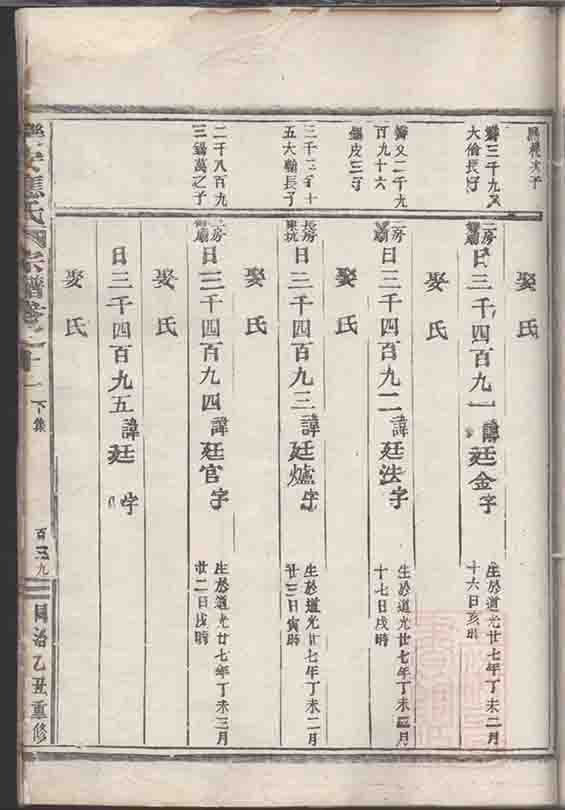 娶氏
辯三千九又
大倫長子
二房
日三千四百九一諱廷金字
生於道光廿七年丁未二月
十六日亥時
娶氏
辯又二千九
百九十六
錫皮三子
二房
日三千四百九二諱廷法字
生於道光廿七年丁未二月
十七日戌時
娶氏
五大翰長子
長房
日三千四百九三諱廷爐字
生於道光廿七年丁未二月
廿三日寅時
娶氏
二千八百九
三錫萬之子
二房
日三千四百九四諱廷官字
生於道光廿七年丁未三月
廿二日戌時
娶氏
日三千四百九五諱廷字
娶氏
樂安蔣氏宗譜卷之十一
下集
百三九
同治乙丑重修